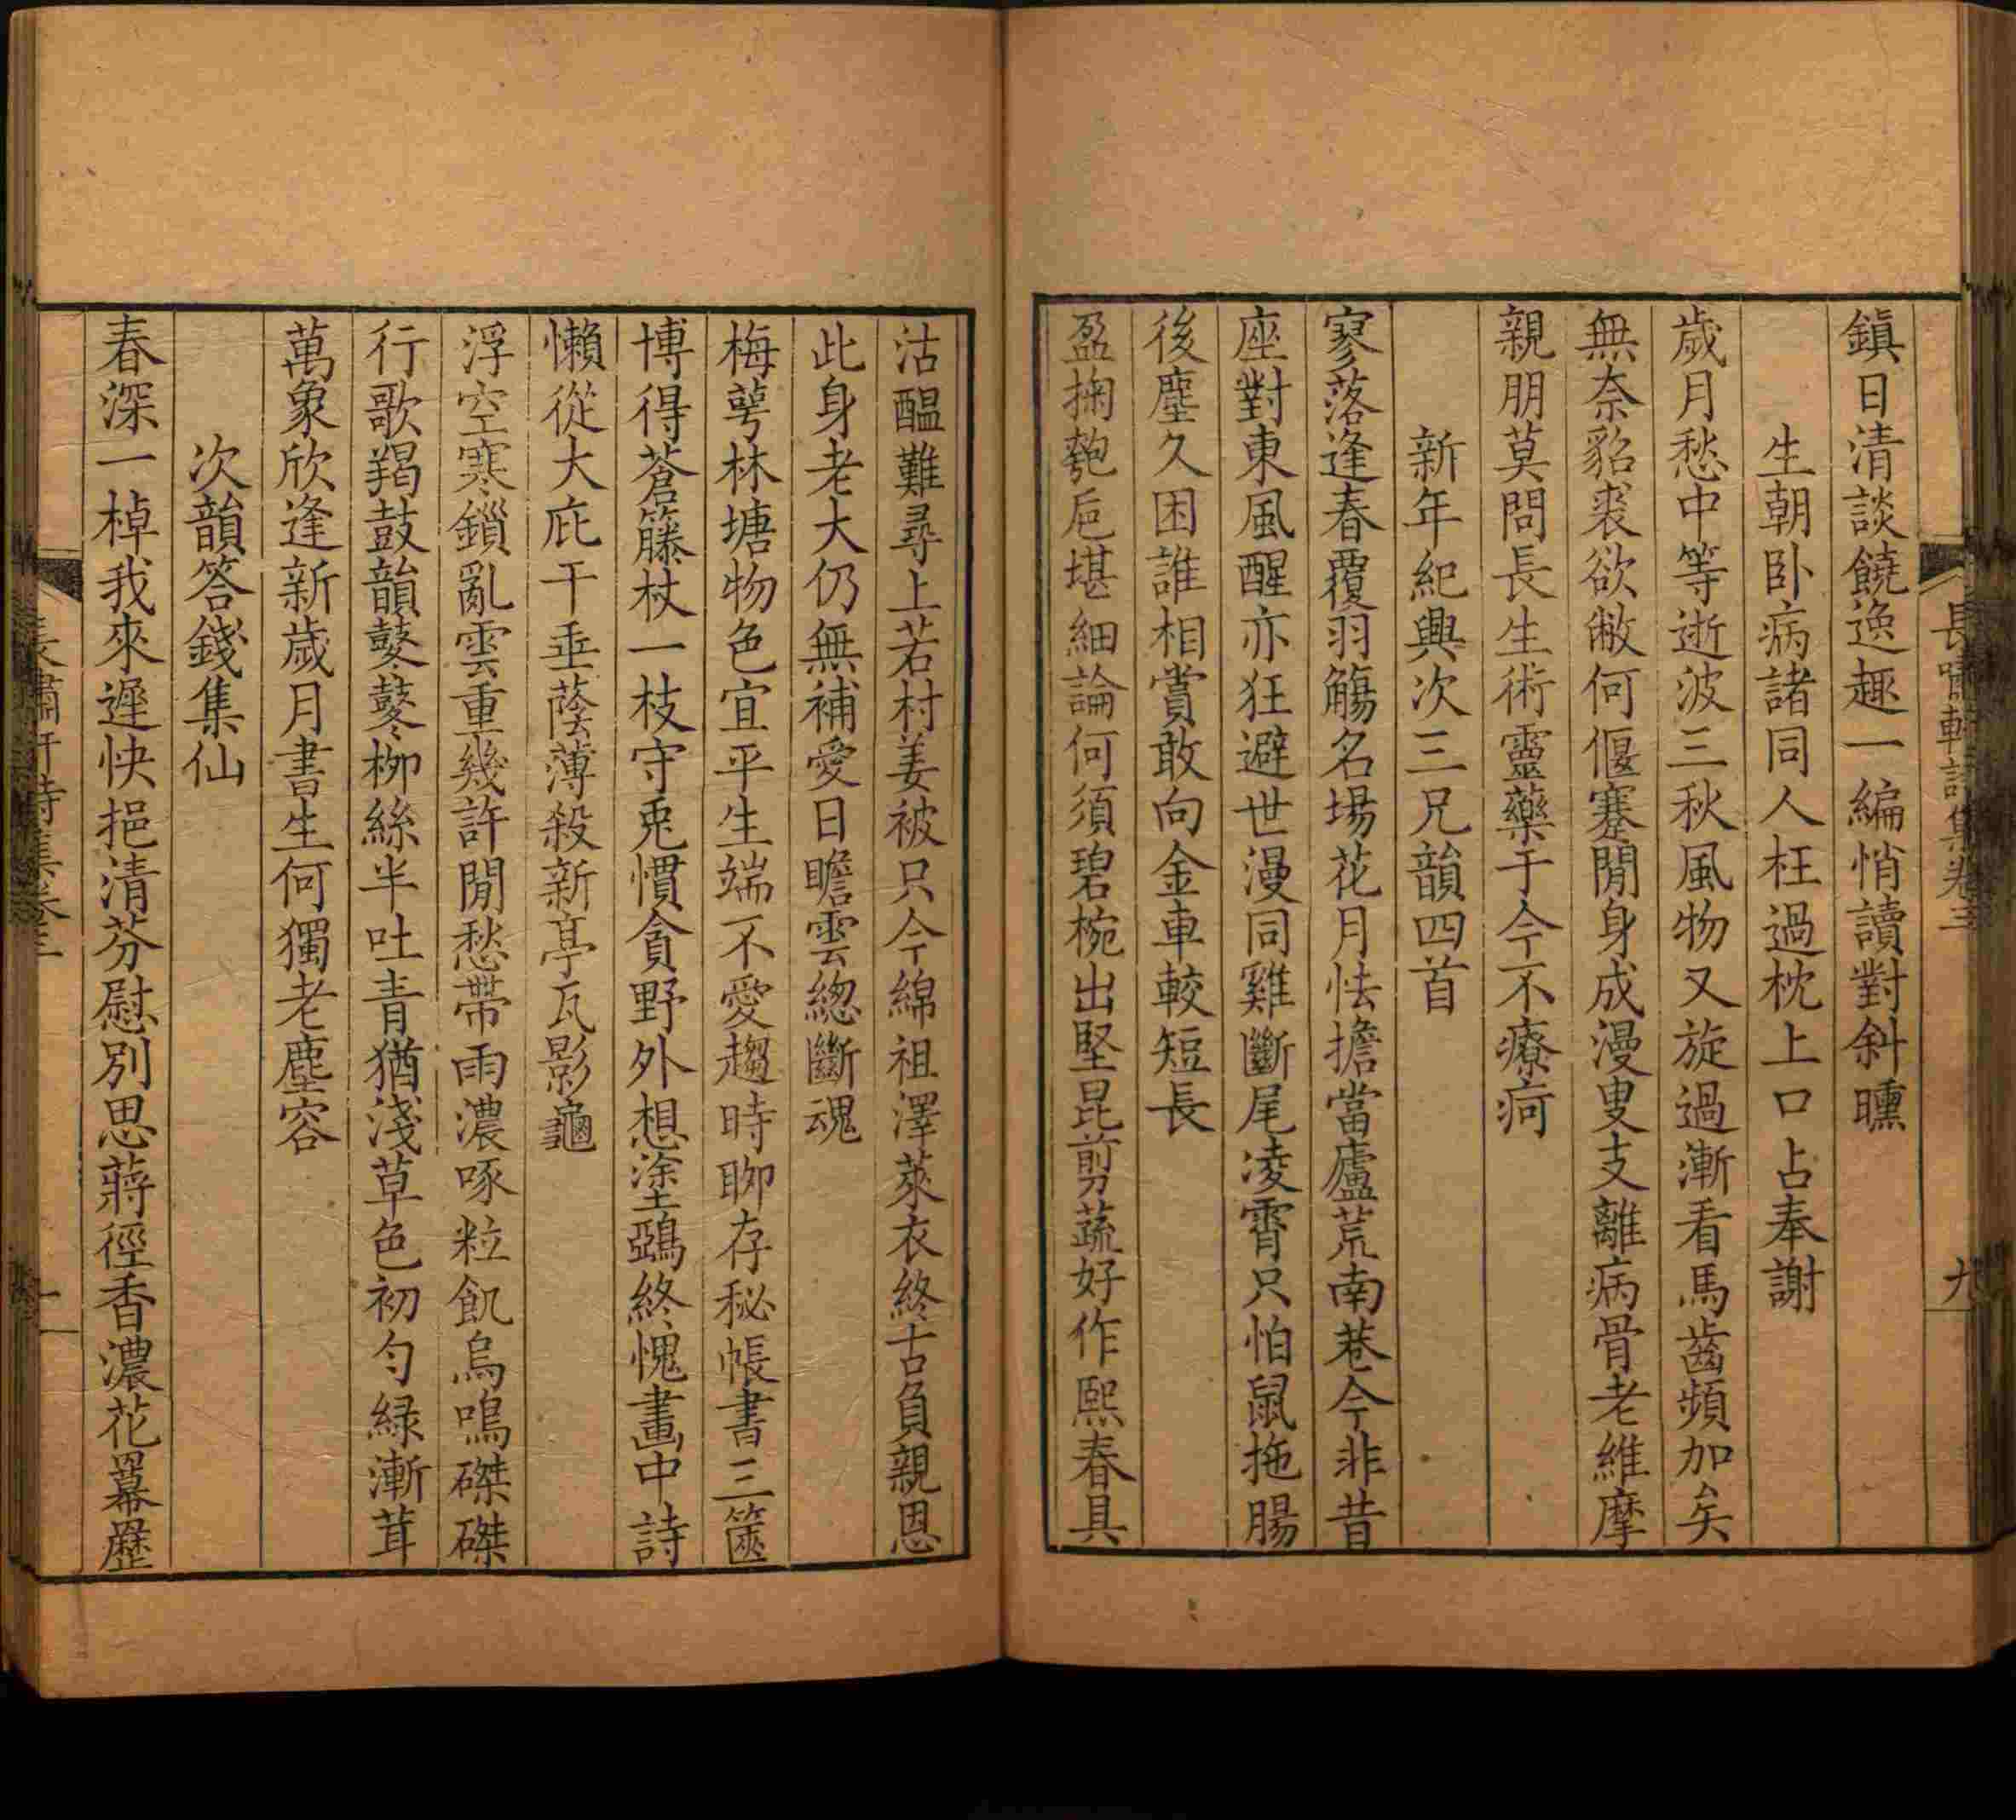 長嘯軒詩集卷三
九
鎭日清談饒逸趣一編悄讀對斜曛
生朝卧病諸同人枉過枕上口占奉謝
歲月愁中等逝波三秋風物又旋過漸看馬齒頻加矣
無奈貂裘欲敝何偃蹇閒身成漫叟支離病骨老維摩
親朋莫問長生術靈藥于今不療疴
新年紀興次三兄韻四首
寥落逢春覆羽觴名場花月怯擔當廬荒南巷今非昔
座對東風醒亦狂避世漫同雞斷尾凌霄只怕鼠拖腸
後塵久困誰相賞敢向金車較短長
盈掬匏巵堪細論何須碧椀出堅昆剪蔬好作熙春具
沽醖難尋上若村姜被只今綿祖澤萊衣終古負親恩
此身老大仍無補愛日瞻雲緫斷魂
梅萼林塘物色宜平生端不愛趨時聊存秘帳書三篋
博得蒼籐杖一枝守兎慣貪野外想塗鵶終愧畫中詩
懶從大庇干垂蔭薄殺新亭瓦影龜
浮空寒鎖亂雲重幾許閒愁帶雨濃啄粒飢烏鳴磔磔
行歌羯鼓韻鼕鼕柳絲半吐青猶淺草色初勻緑漸茸
萬象欣逢新歲月書生何獨老塵容
次韻答錢集仙
春深一棹我來遲快挹清芬慰別思蔣徑香濃花羃歷
長嘯軒詩集卷三